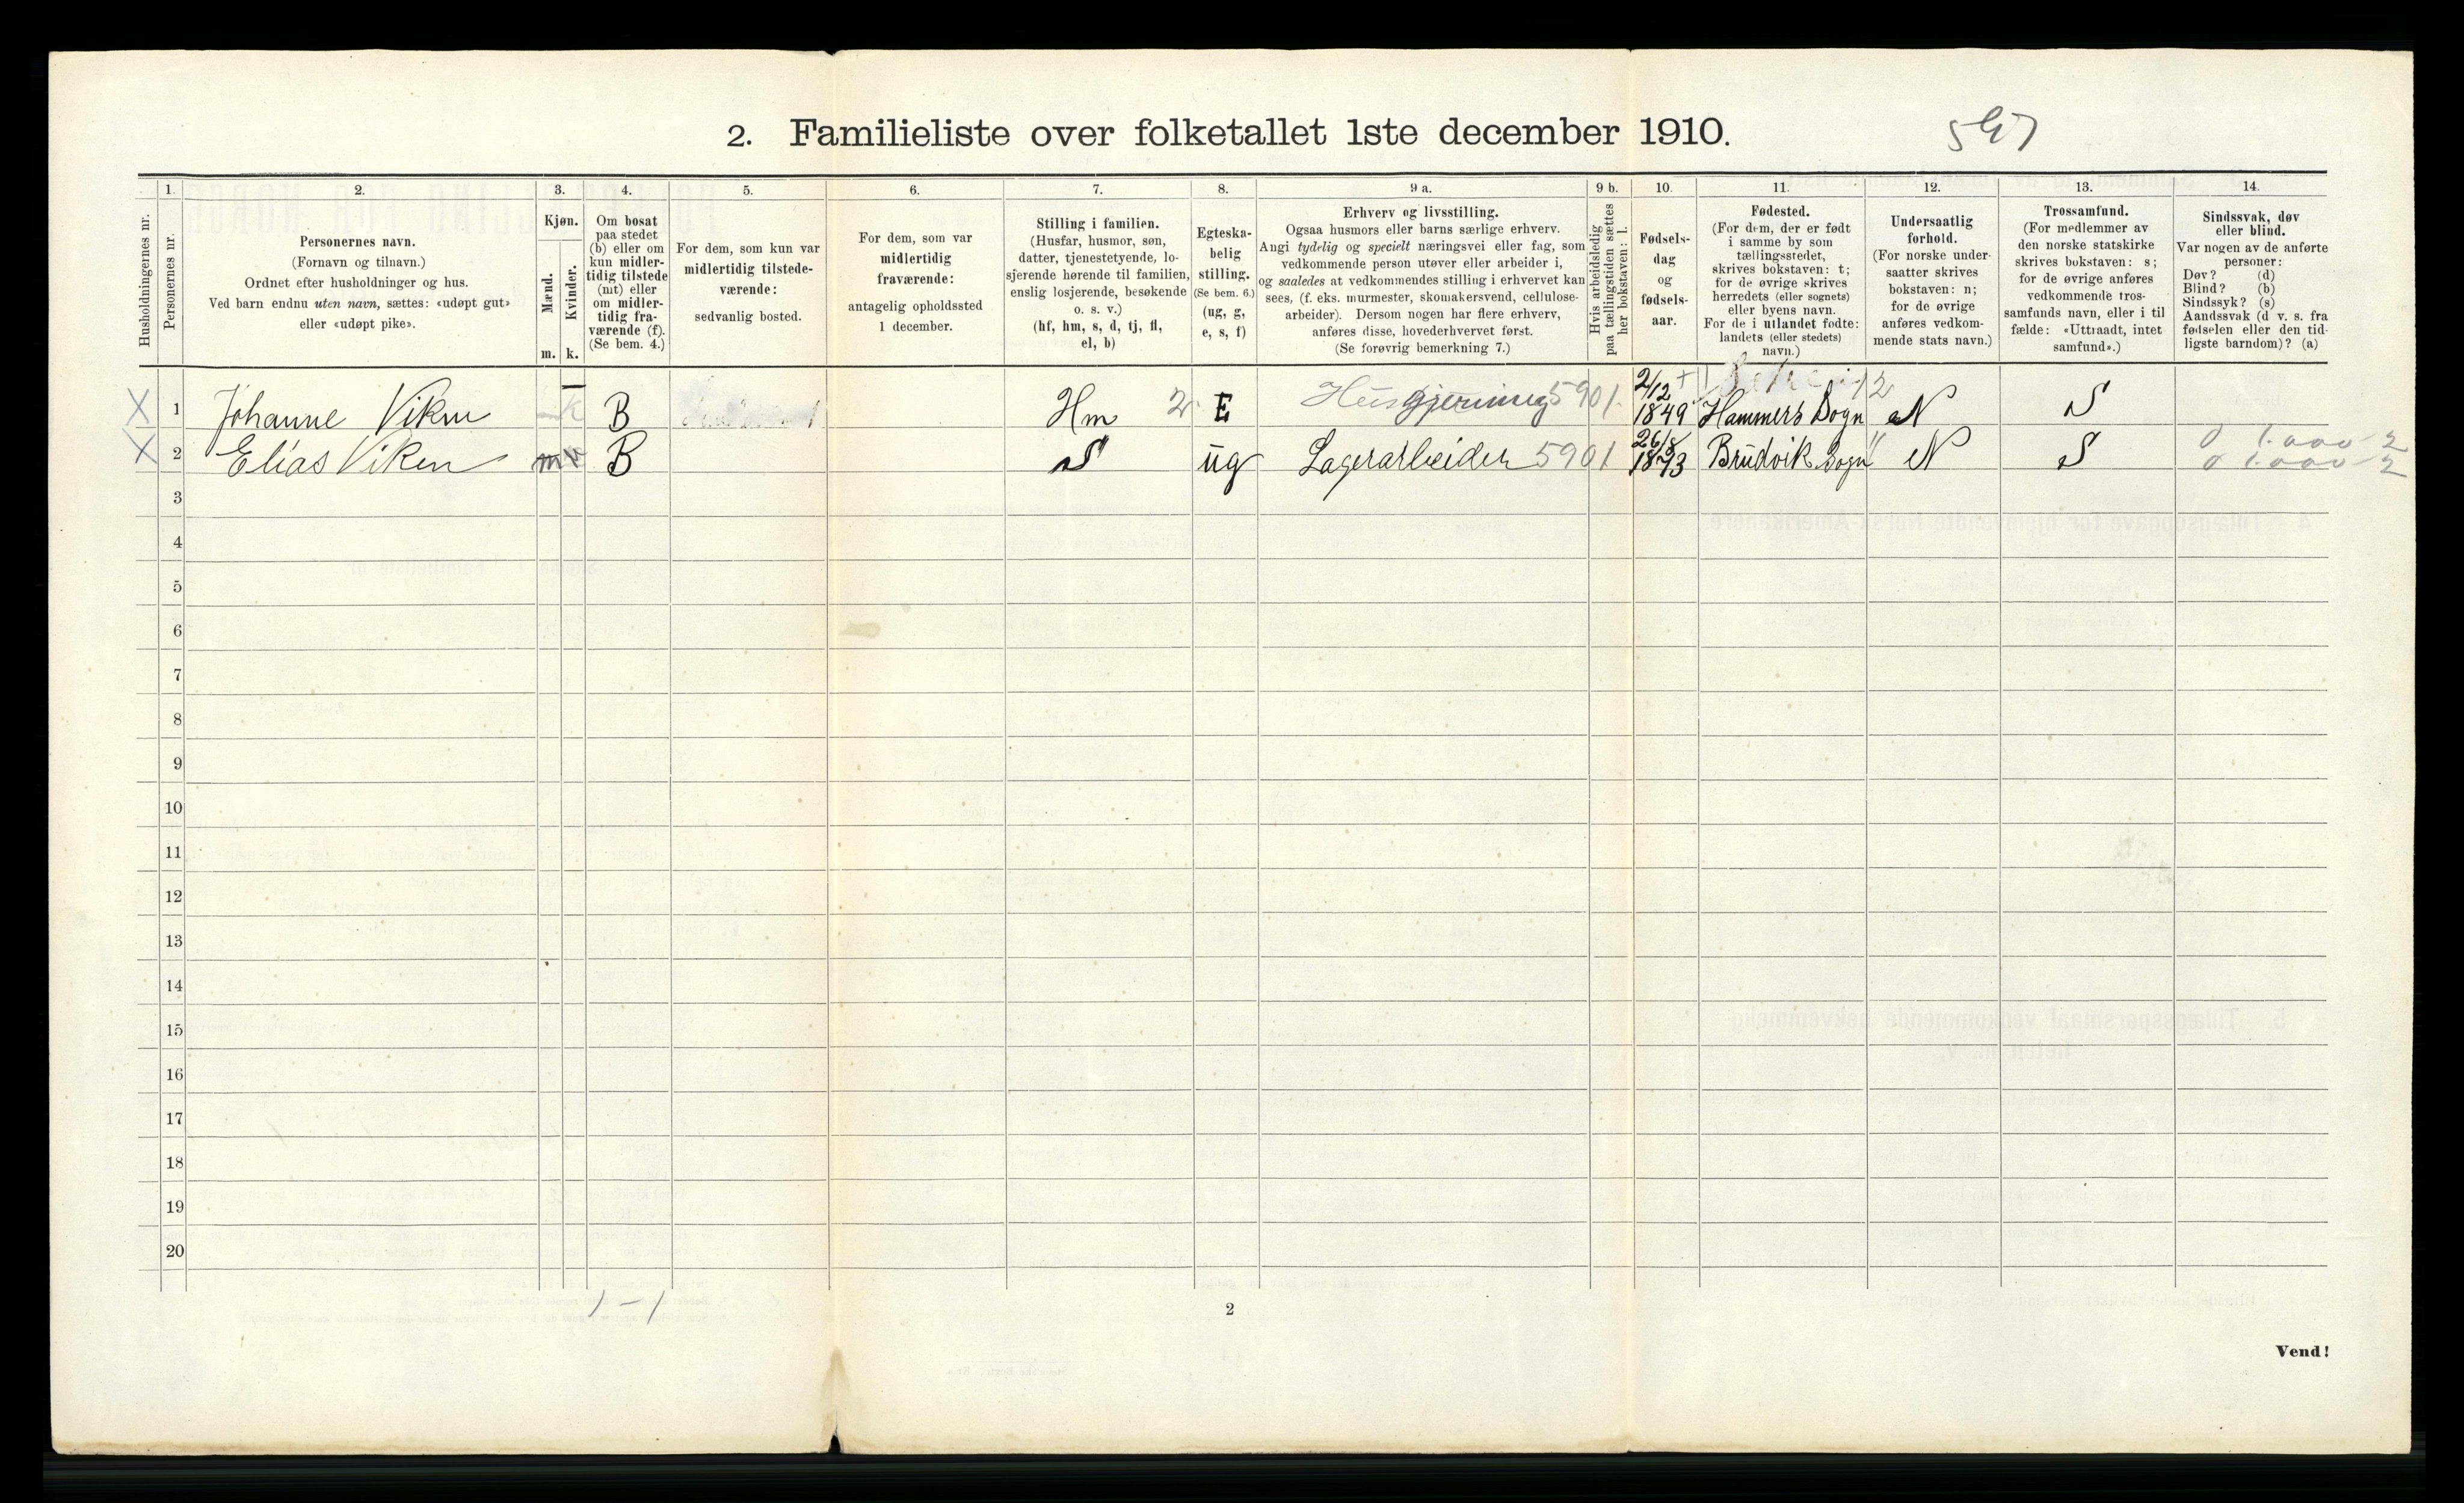 2. Familieliste over folketallet 1ste december 1910.
1. 2. 3. 4. 5. 6. 7. 8. 9 a. 9 b. 10. 11. 12. 13. 14.
Husholdningernes nr.
Personernes nr.
Personernes navn.
(Fornavn og tilnavn.)
Ordnet efter husholdninger og hus.
Ved barn endnu uten navn, sættes: «udøpt gut»
eller «udøpt pike».
Kjøn.
Mænd.
Kvinder.
m. k.
Om bosat
paa stedet
(b) eller om
kun midler-
tidig tilstede
(mt) eller
om midler-
tidig fra-
værende (f).
(Se bem. 4.)
For dem, som kun var
midlertidig tilstede-
værende:
sedvanlig bosted.
For dem, som var
midlertidig
fraværende:
antagelig opholdssted
1 december.
Stilling i familien.
(Husfar, husmor, søn,
datter, tjenestetyende, lo-
sjerende hørende til familien,
enslig losjerende, besøkende
o. s. v.)
(hf, hm, s, d, tj, fl,
el, b)
Egteska-
belig
stilling.
(Se bem. 6.)
(ug, g,
e, s, f)
Erhverv og livsstilling.
Ogsaa husmors eller barns særlige erhverv.
Angi tydelig og specielt næringsvei eller fag, som
vedkommende person utøver eller arbeider i,
og saaledes at vedkommendes stilling i erhvervet kan
sees, (f. eks. murmester, skomakersvend, cellulose-
arbeider). Dersom nogen har flere erhverv,
anføres disse, hovederhvervet først.
(Se forøvrig bemerkning 7.)
Hvis arbeidsledig
paa tællingstiden sættes
her bokstaven: l.
Fødsels-
dag
og
fødsels-
aar.
Fødested.
(For dem, der er født
i samme by som
tællingsstedet,
skrives bokstaven: t;
for de øvrige skrives
herredets (eller sognets)
eller byens navn.
For de i utlandet fødte:
landets (eller stedets)
navn.)
Undersaatlig
forhold.
(For norske under-
saatter skrives
bokstaven: n;
for de øvrige
anføres vedkom-
mende stats navn.)
Trossamfund.
(For medlemmer av
den norske statskirke
skrives bokstaven: s;
for de øvrige anføres
vedkommende tros-
samfunds navn, eller i til
fælde: «Uttraadt, intet
samfund».)
Sindssvak, døv
eller blind.
Var nogen av de anførte
personer:
Døv? (d)
Blind? (b)
Sindssyk? (s)
Aandssvak (d v. s. fra
fødselen eller den tid-
ligste barndom)? (a)
X 1 Johanne Viken k B Hm 2 E Husgjerning 5901. 2/12 1849 Hammers Sogn N S
X 2 Elias Viken m B S ug Lagerarbeider 5901 26/8 1893 Brudvik Sogn N S
3
4
5
6
7
8
9
10
11
12
13
14
15
16
17
18
19
20
1 - 1
2
Vend!